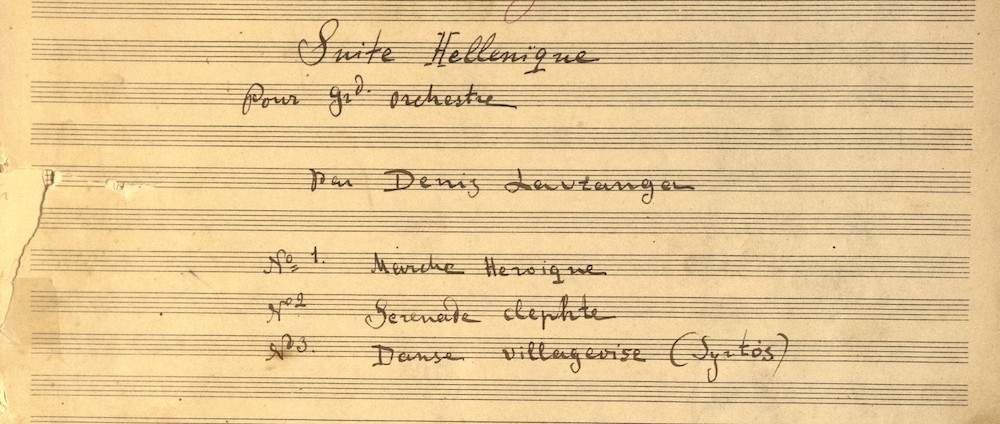 Suite Hellenique
Pour grd. orchestre
par Denis Lavranga
No 1. Marche Heroique
No 2 Serenade clephte
No 3. Danse villageoise (Syrtós)